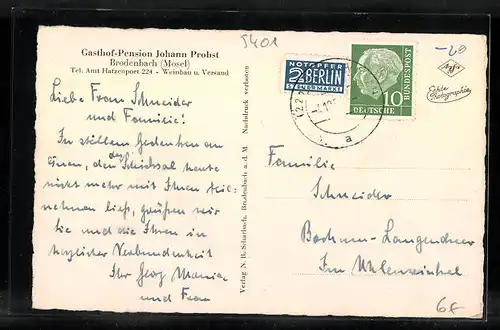 5401
Gasthof-Pension Johann Probst
Brodenbach (Mosel)
Tel. Amt Hatzenport 224 - Weinbau u. Versand
Liebe Frau Schneider
und Familie!
In stillem Gedenken an
einen, den das Schicksal heute
nicht mehr mit Ihnen teil-
nehmen ließ, grüßen wir
Sie und die Ihren in
herzlicher Verbundenheit
Ihr Georg
und Frau
Verlag N. B. Scharbach, Brodenbach a. d. M. Nachdruck verboten
NOTOPFER
2 BERLIN
STEUERMARKE
10
DEUTSCHE
BUNDESPOST
a
-20
Echte
Photographie
Familie
Schneider
Bochum-Langendreer
Im Uhlenwinkel
6f